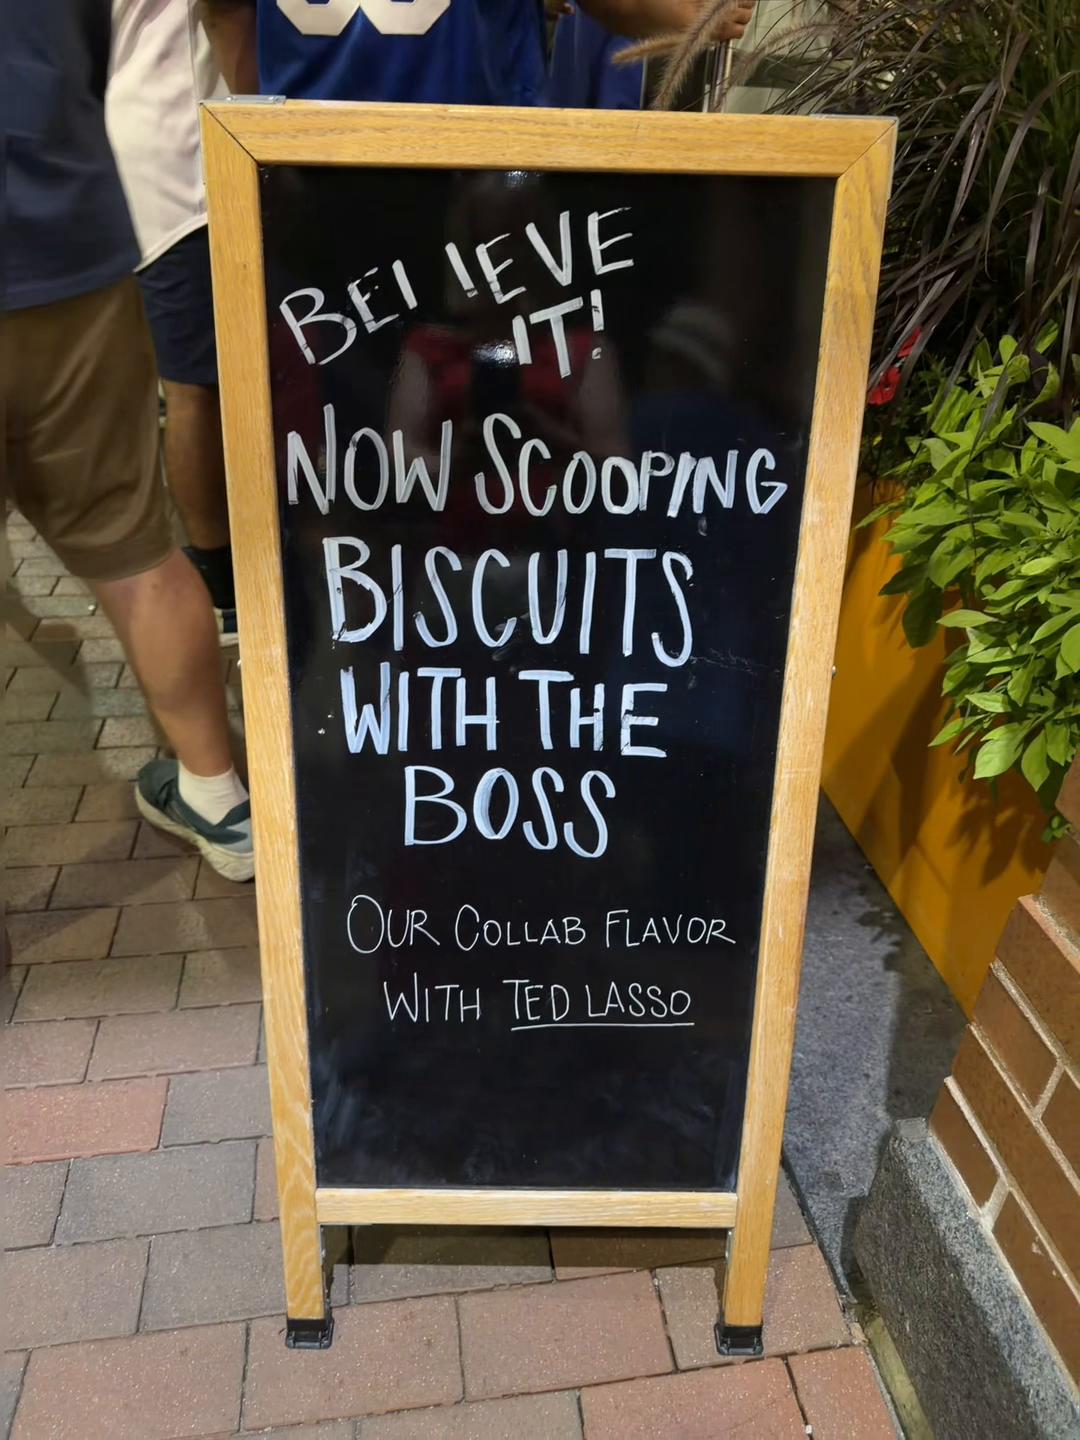 BELIEVE
IT!
NOW SCOOPING
BISCUITS
WITH THE
BOSS
OUR COLLAB FLAVOR
WITH TED LASSO